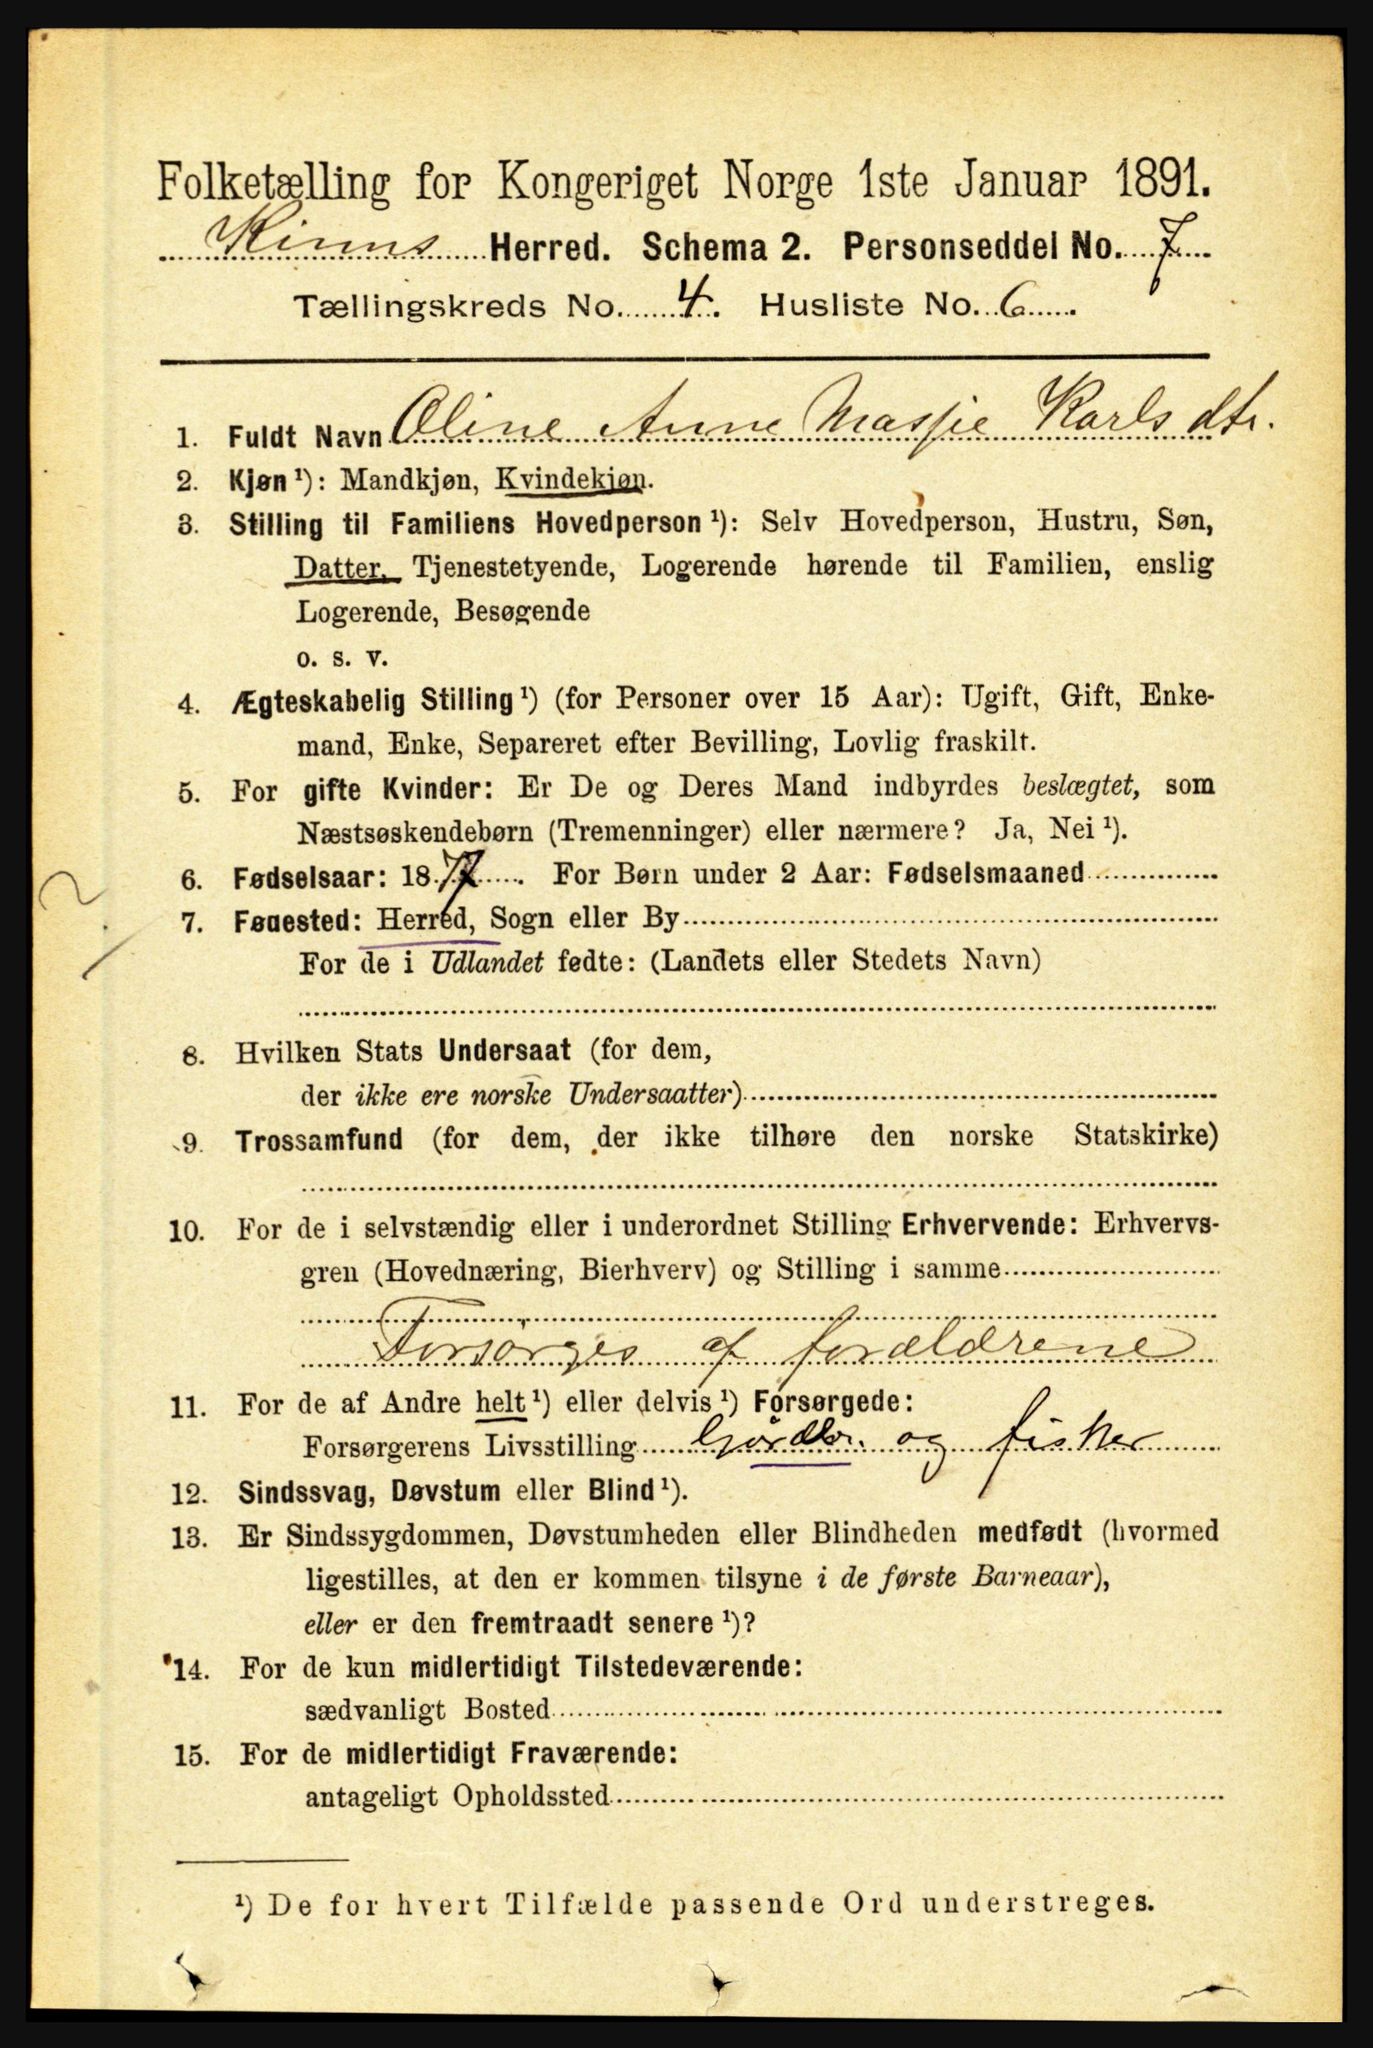 Folketælling for Kongeriget Norge 1ste Januar 1891.
Kinns Herred. Schema 2. Personseddel No. 7
Tællingskreds No. 4. Husliste No. 6
1. Fuldt Navn Oline Anne Massie Karls dtr.
2. Kjøn ¹): Mandkjøn, Kvindekjøn.
3. Stilling til Familiens Hovedperson ¹): Selv Hovedperson, Hustru, Søn,
Datter, Tjenestetyende, Logerende hørende til Familien, enslig
Logerende, Besøgende
o. s. v.
4. Ægteskabelig Stilling ¹) (for Personer over 15 Aar): Ugift, Gift, Enke-
mand, Enke, Separeret efter Bevilling, Lovlig fraskilt.
5. For gifte Kvinder: Er De og Deres Mand indbyrdes beslægtet, som
Næstsøskendebørn (Tremenninger) eller nærmere? Ja, Nei ¹).
6. Fødselsaar: 1877. For Børn under 2 Aar: Fødselsmaaned
7. Fødested: Herred, Sogn eller By
For de i Udlandet fødte: (Landets eller Stedets Navn)
8. Hvilken Stats Undersaat (for dem,
der ikke ere norske Undersaatter)
9. Trossamfund (for dem, der ikke tilhøre den norske Statskirke)
10. For de i selvstændig eller i underordnet Stilling Erhvervende: Erhvervs-
gren (Hovednæring, Bierhverv) og Stilling i samme
Forsørges af forældrene
11. For de af Andre helt ¹) eller delvis ¹) Forsørgede:
Forsørgerens Livsstilling Gårdbr. og fisker
12. Sindssvag, Døvstum eller Blind ¹).
13. Er Sindssygdommen, Døvstumheden eller Blindheden medfødt (hvormed
ligestilles, at den er kommen tilsyne i de første Barneaar),
eller er den fremtraadt senere ¹)?
14. For de kun midlertidigt Tilstedeværende:
sædvanligt Bosted
15. For de midlertidigt Fraværende:
antageligt Opholdssted
¹) De for hvert Tilfælde passende Ord understreges.